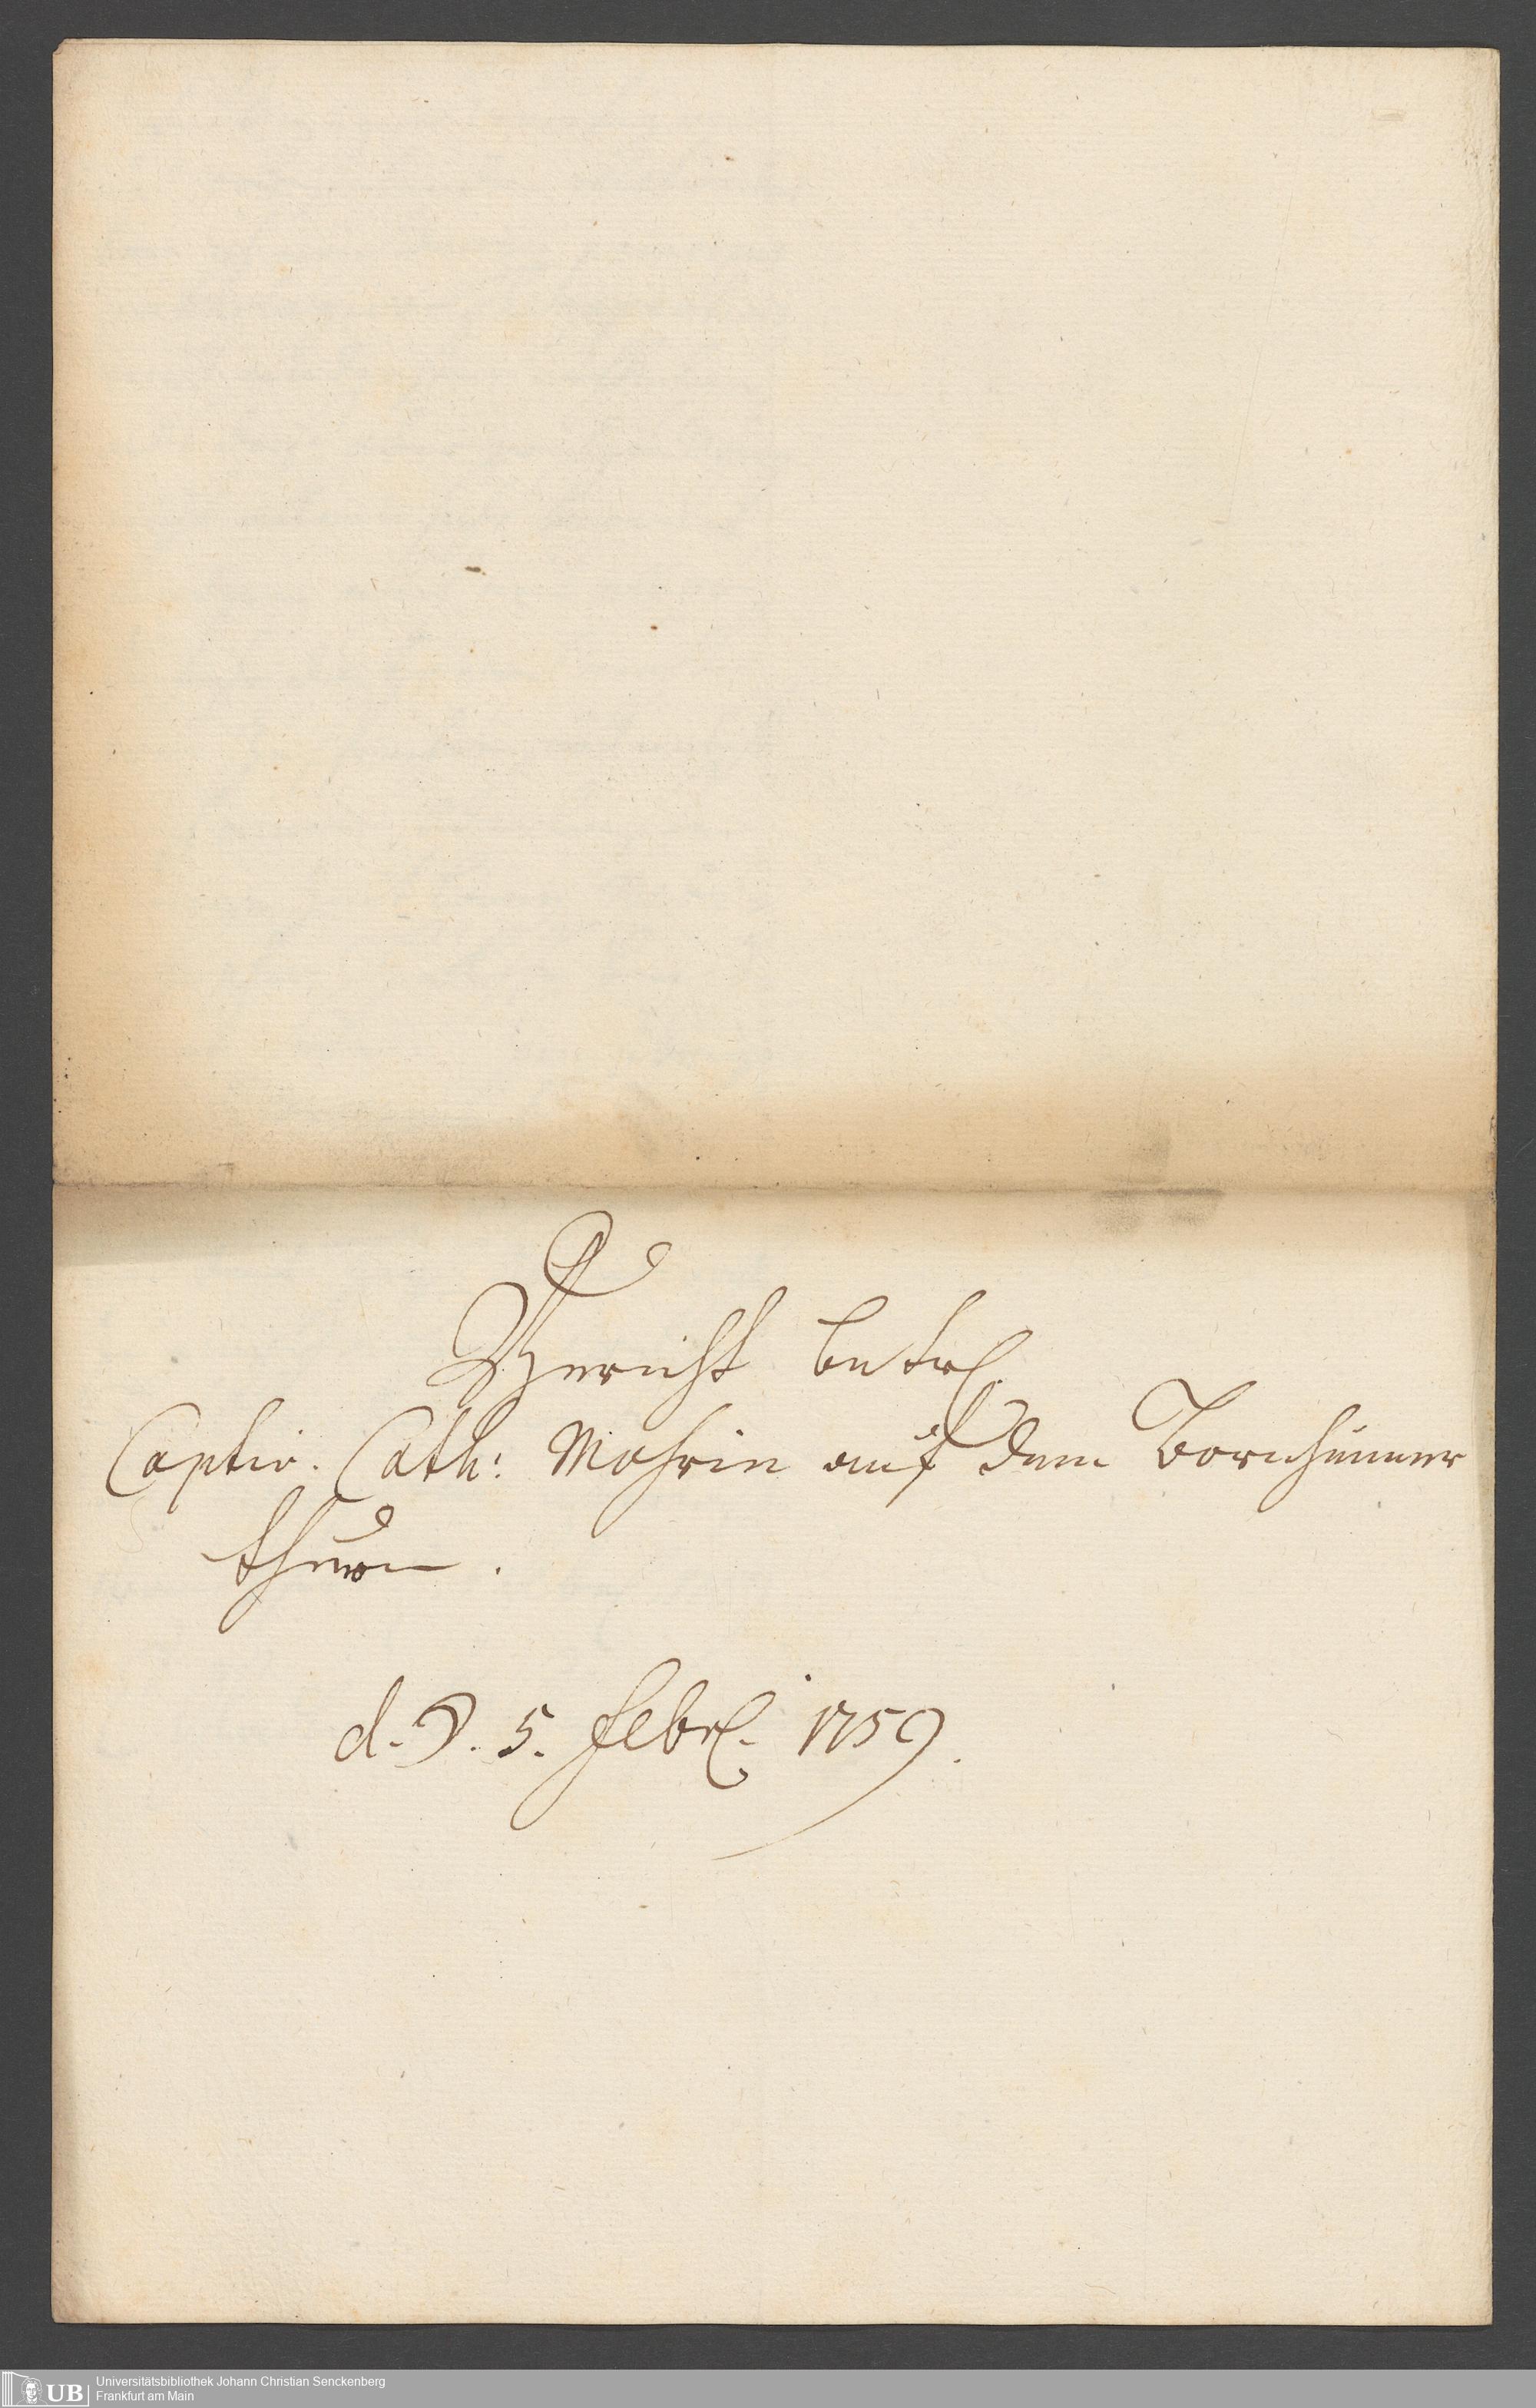 Bericht betr.
Captiv. Cath: Mohrin auf dem Bornheimer
thurn.
d. 5. Febr. 1759.
UB
Universitätsbibliothek Johann Christian Senckenberg
Frankfurt am Main